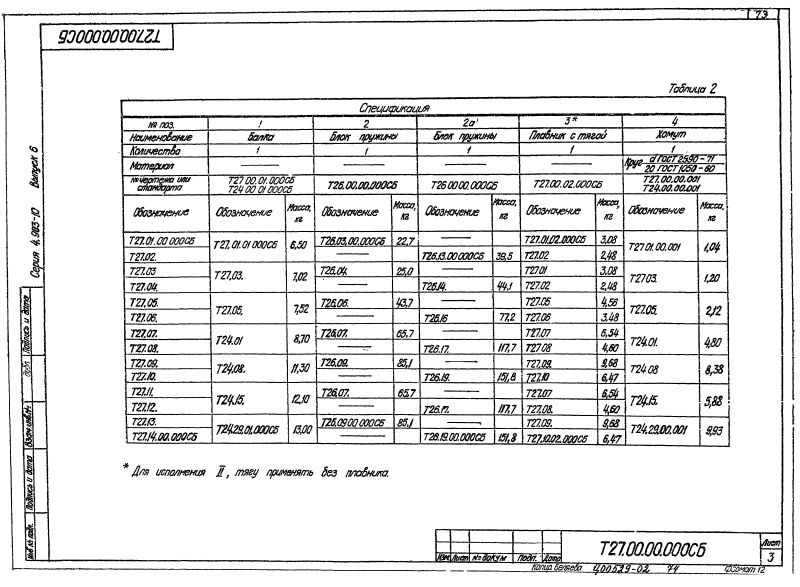 73
Т27.00.00.000СБ
Таблица 2
Спецификация
№ поз. 1 2 2а' 3* 4
Наименование Балка Блок пружины Блок пружины Плавник с тягой Хомут
Количество 1 1 1 1 1
Материал — — — — Круг d ГОСТ 2590-71 / 20 ГОСТ 1050-60
№ чертежа или стандарта Т27.00.01.000СБ Т24.00.01.000СБ Т26.00.00.000СБ Т26.00.00.000СБ Т27.00.02.000СБ Т27.00.00.001 Т24.00.00.001
Обозначение Обозначение Масса, кг Обозначение Масса, кг Обозначение Масса, кг Обозначение Масса, кг Обозначение Масса, кг
Т27.01.00.000СБ Т27.01.01.000СБ 6,50 Т26.03.00.000СБ 22,7 Т27.01.02.000СБ 3,08 Т27.01.00.001 1,04
Т27.02. — Т26.13.00.000СБ 39,5 Т27.02 2,48
Т27.03 Т27.03. 7,02 Т26.04. 25,0 — Т27.01 3.08 Т27.03. 1,20
Т27.04. — Т26.14. 44.1 Т27.02 2,48
Т27.05. Т27.05. 7,52 Т26.06. 43,7 — Т27.05 4,56 Т27.05. 2,12
Т27.06. — Т26.16 77,2 Т27.06 3.48
Т27.07. Т24.01 8,70 Т26.07. 65,7 — Т27.07 6,54 Т24.01. 4,80
Т27.08. — Т26.17. 117,7 Т27.08 4,60
Т27.09. Т24.08. 11,30 Т26.09. 85,1 — Т27.09. 9,68 Т24.08 8,38
Т27.10. — Т26.19. 151,8 Т27.10 6,47
Т27.11. Т24.15. 12,10 Т26.07. 65.7 — Т27.07 6,54 Т24.15. 5,88
Т27.12. — Т26.17. 117,7 Т27.08. 4,60
Т27.13. Т24.29.01.000СБ 13,00 Т26.09.00.000СБ 85,1 — Т27.09. 9,68 Т24.29.00.001 9,93
Т27.14.00.000СБ — Т26.19.00.000СБ 151,8 Т27.10.02.000СБ 6,47
* Для исполнения II, тягу применять без плавника.
Серия 4.903-10 Выпуск 6
Подпись и дата
Взам инв.№
Подпись и дата
Инв № подл.
Изм. Лист № докум Подп. Дата
Т27.00.00.000СБ
Лист
3
Копир. Беляева Ц00529-02 74 Формат 12